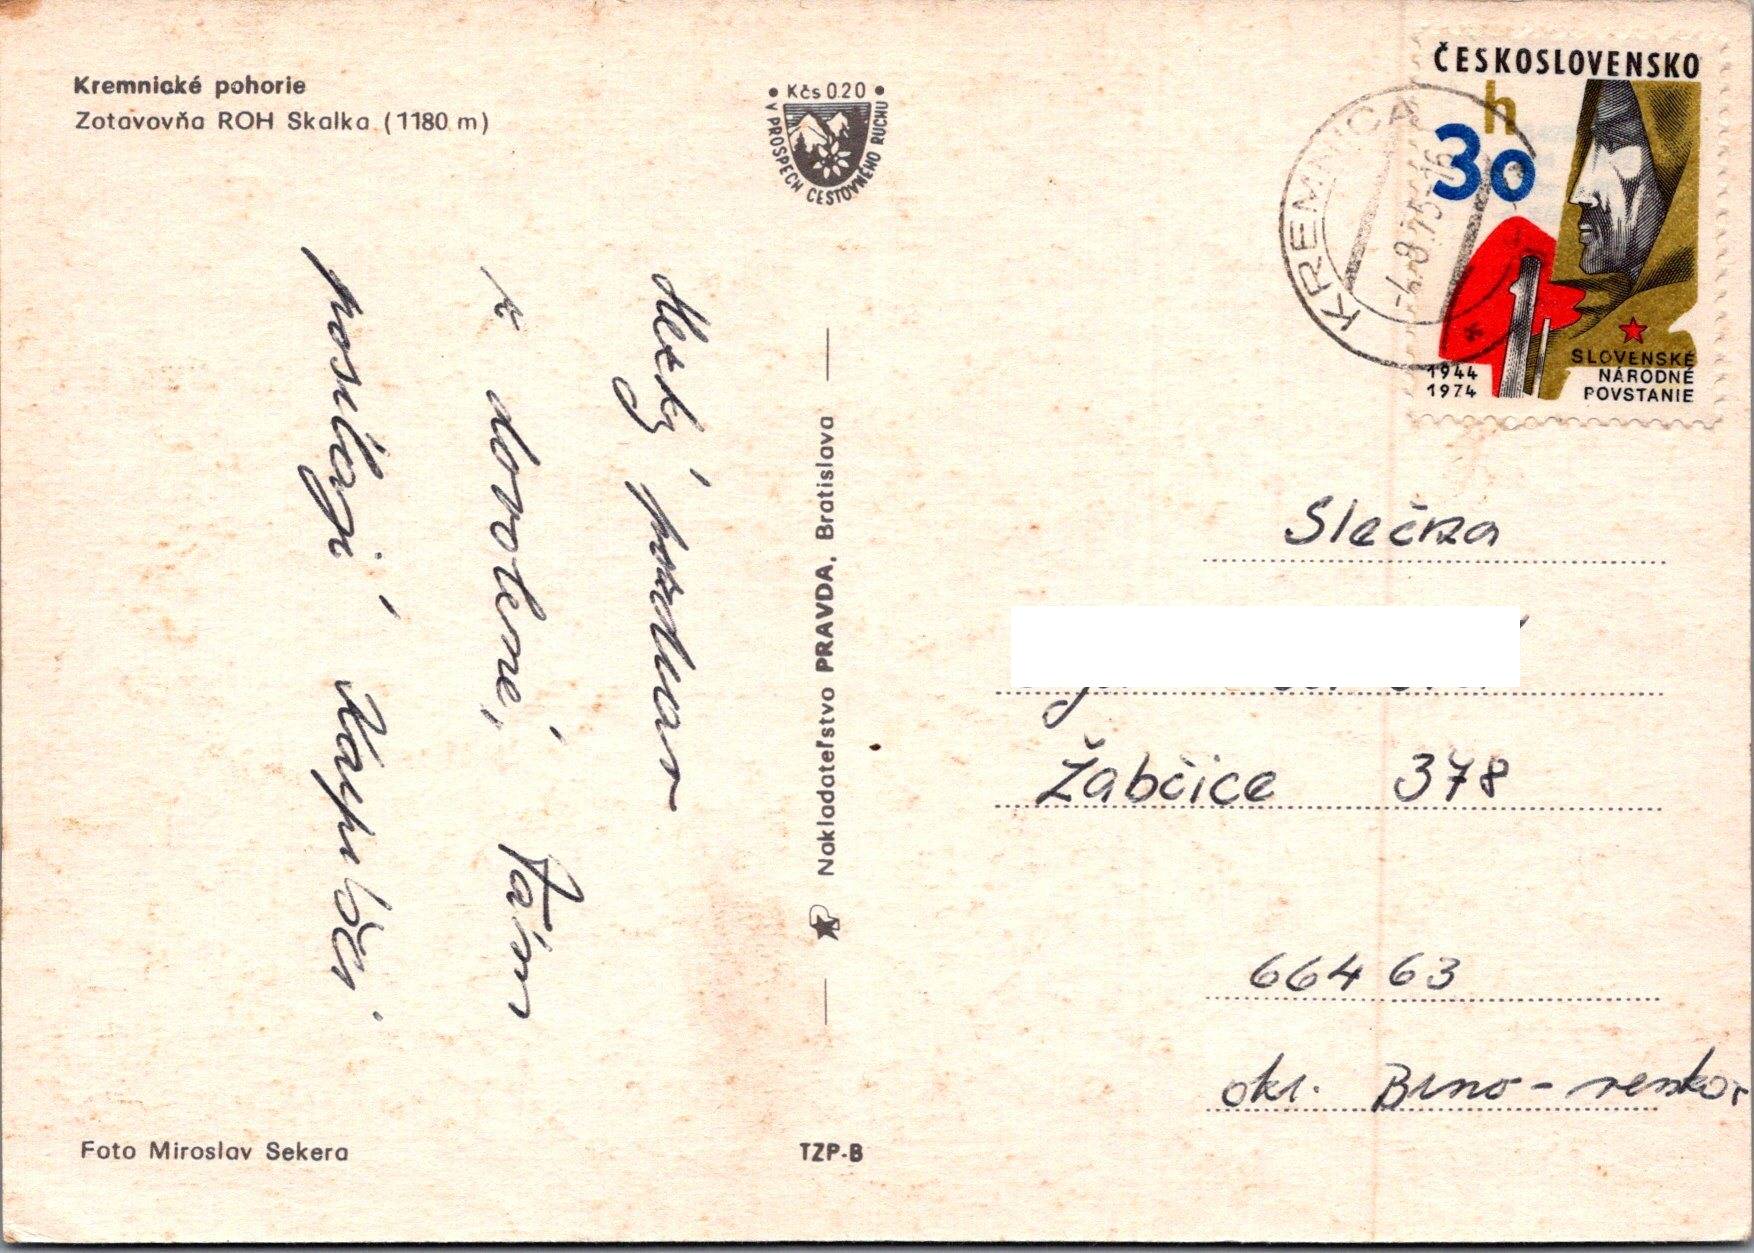 Kremnické pohorie
Zotavovňa ROH Skalka (1180 m)
• Kčs 0.20 •
V PROSPECH CESTOVNÉHO RUCHU
Hezký pozdrav
z dovolené, Vám
posílají Kapplovi.
Nakladateľstvo PRAVDA, Bratislava
Foto Miroslav Sekera
TZP-B
ČESKOSLOVENSKO
h
30
1944
1974
SLOVENSKÉ
NÁRODNÉ
POVSTANIE
KREMNICA
-4.8.75-16
Slečna
Žabčice 378
664 63
okr. Brno-venkov